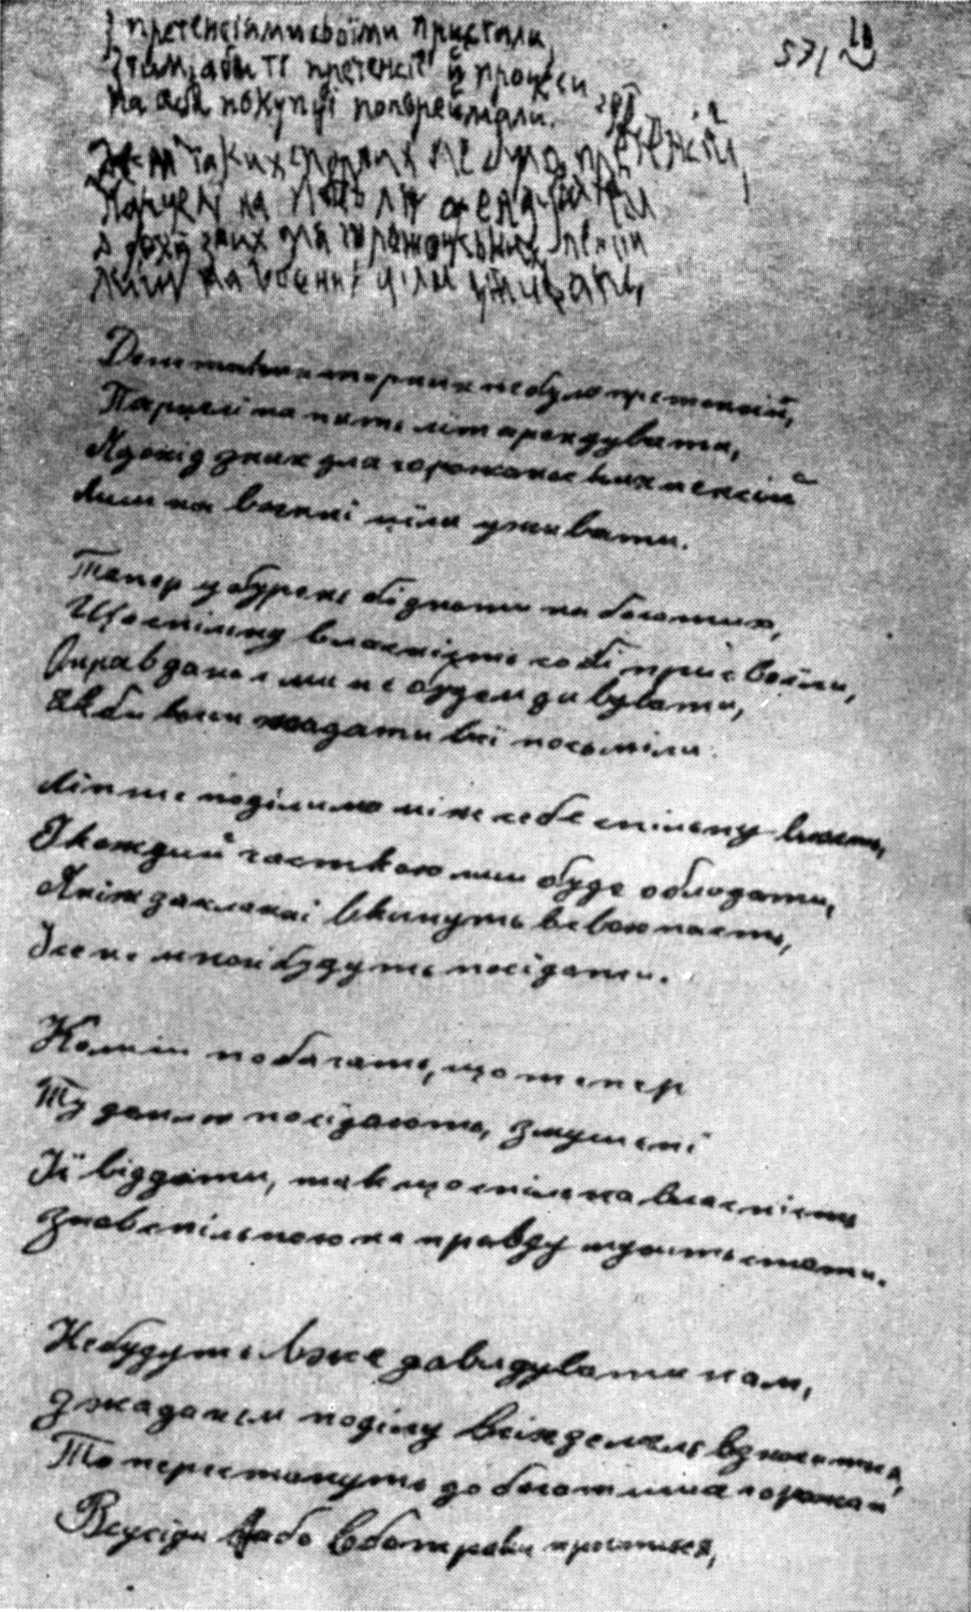 І претенсіями своїми пристали,
З тим, аби ті претенсії й процеси
На себе покупці попереймали.
571
таких не було претенсій,
Парцелі на пять літ арендувати
А дохід з них для горожанських пенсій
Лиш на воєнні ціли уживати.
таких не було претенсій,
Парцелі на пять літ арендувати,
А дохід з них для горожанських пенсій
Лиш на воєнні ціли уживати.
Тепер у обурені бідноти на богатих,
Що спільну власність собі присвоїли,
Оправдано ми не будем дивувати,
Якби вони жадати всї посьміли.
Ліпше поділимо між себе спільну власть,
І кождий часткою лиш буде обладати,
Аніж заклякні вкинуть в свою пасть,
І се не мной будуть посідати.
Коли їм побачать, що тепер
Ту землю посідають, змушені
Її віддати, так що спільна власність
Знов спільною на правду мусить стати.
Не будуть вже завидувати нам,
З жаданєм поділу всіх земель взносити ся,
То перестануть до богатших горожан
В сусіди або в батраки проситися,